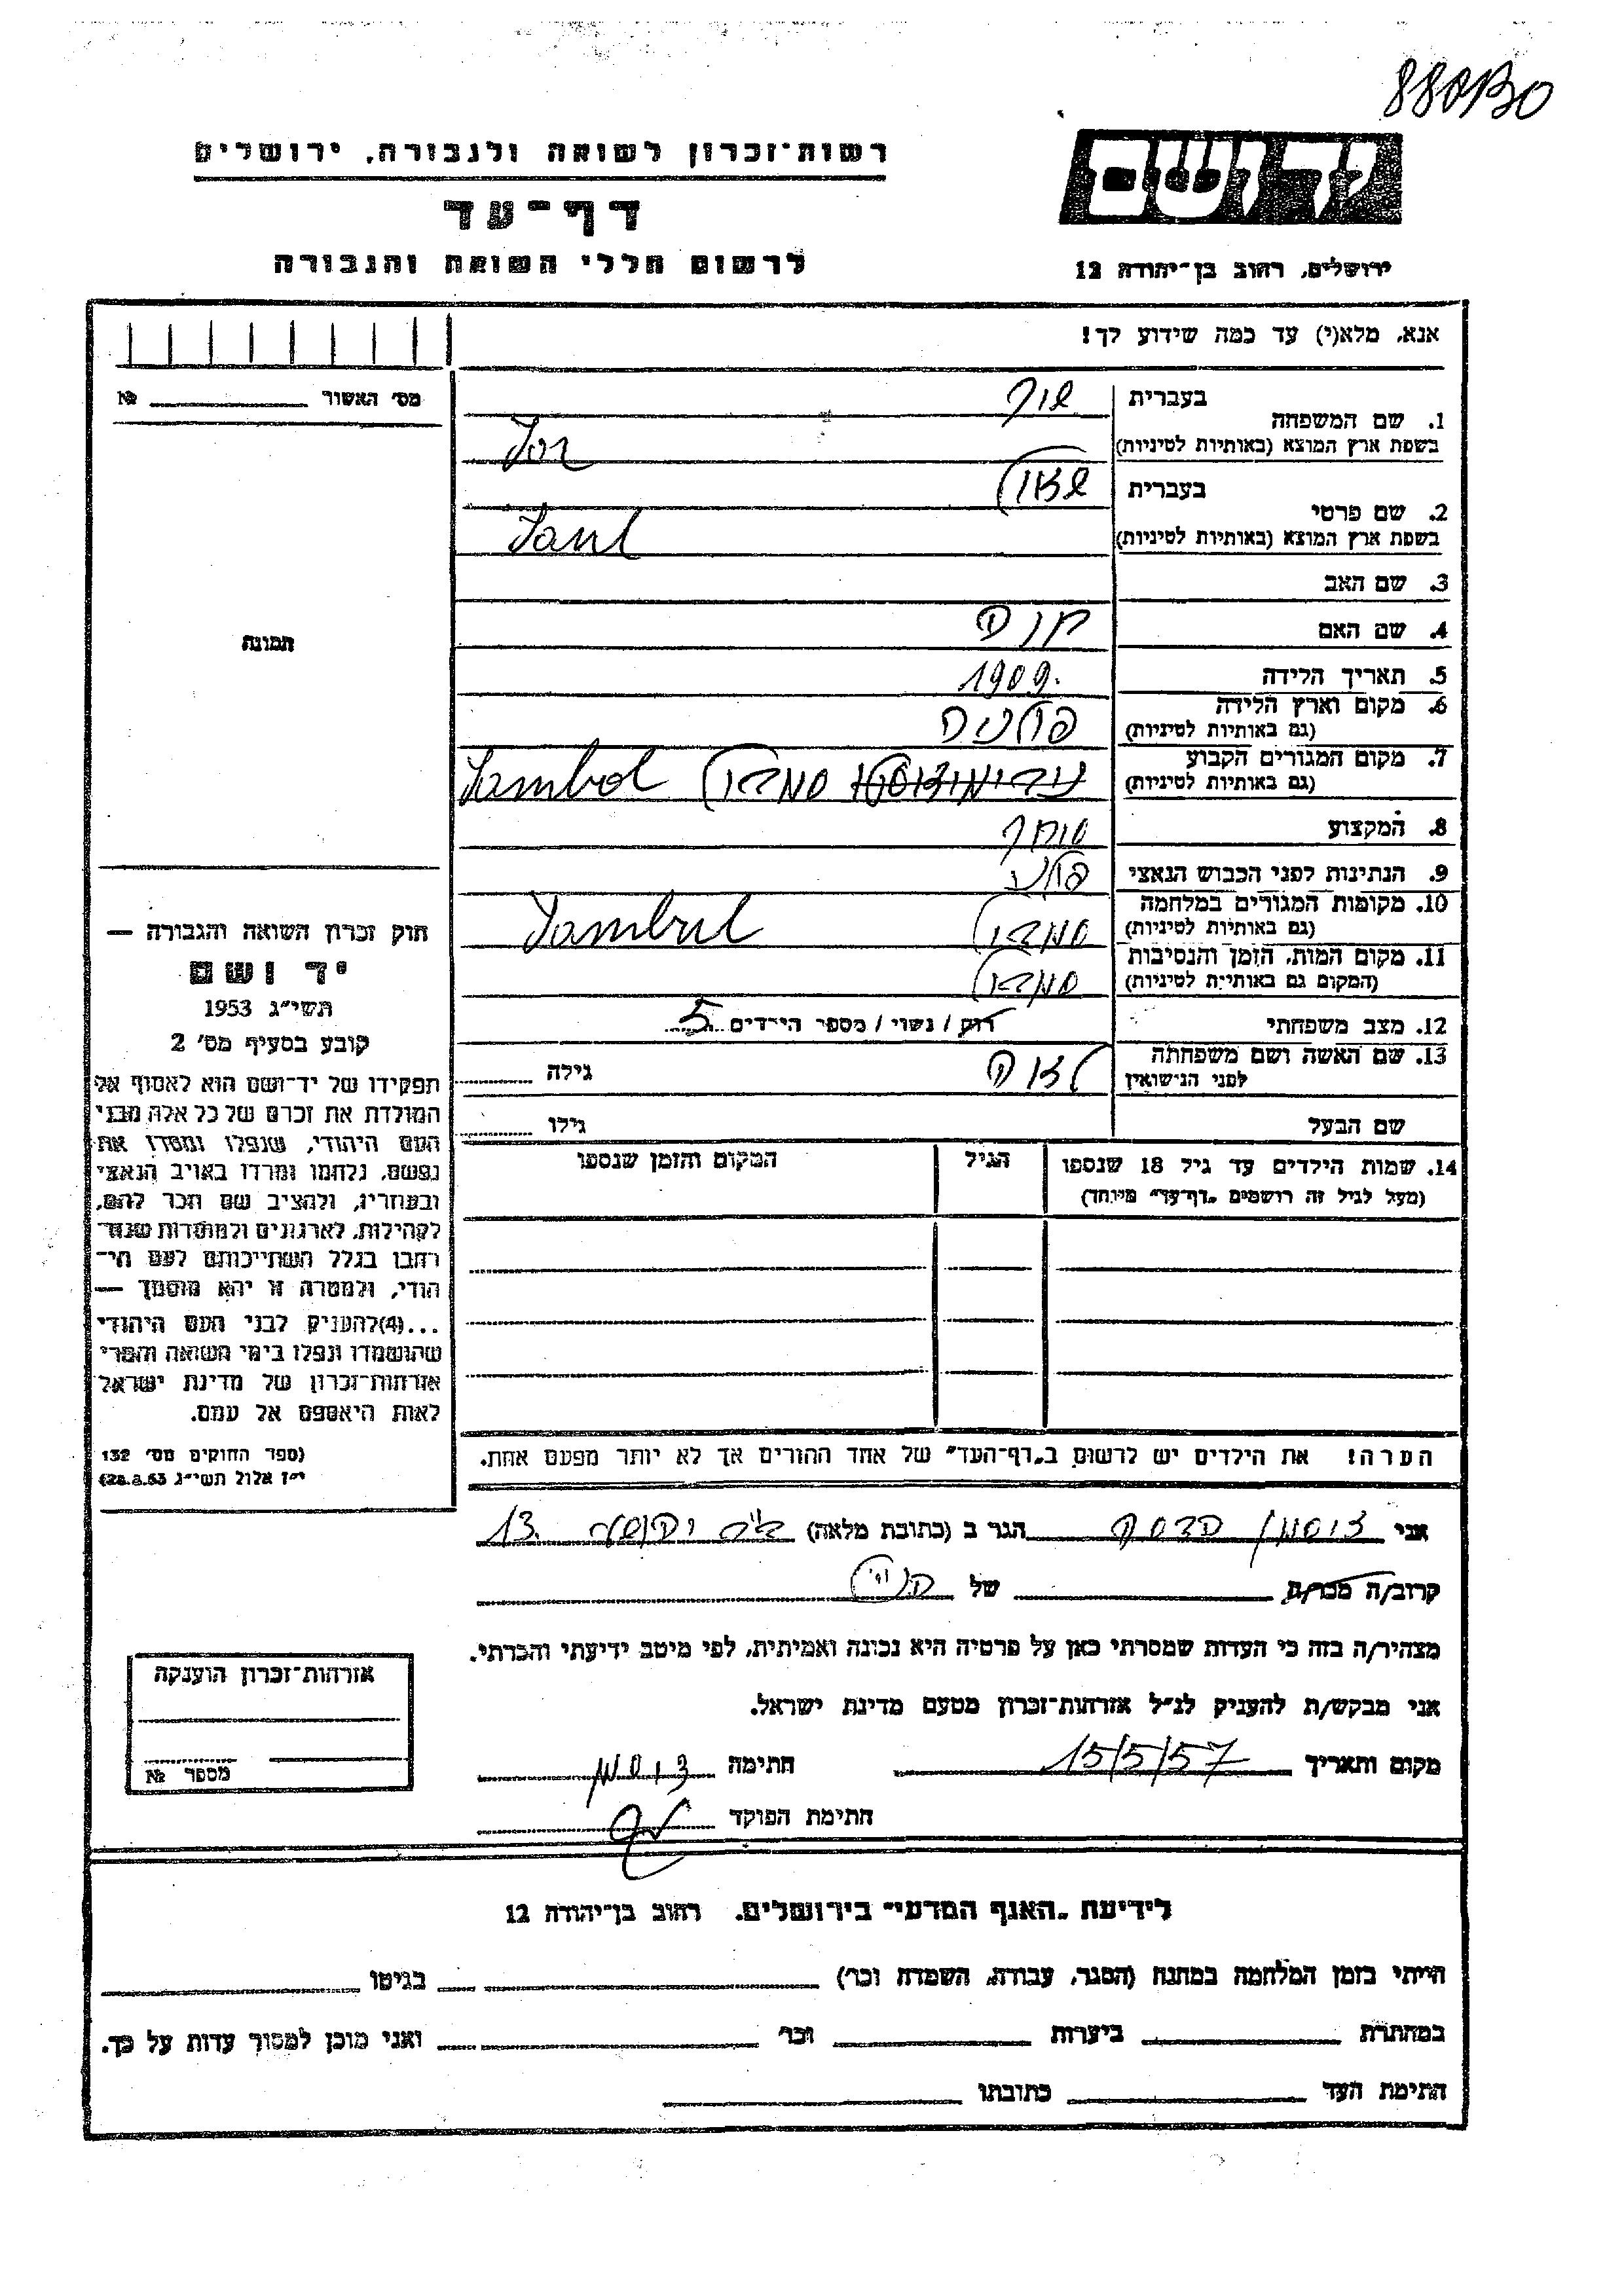 880130
רשות־זכרון לשואה ולגבורה, ירושלים
דף־עד
לרשום חללי השואה והגבורה
יד ושם
ירושלים, רחוב בן־יהודה 12
אנא, מלא(י) עד כמה שידוע לך!
מס׳ האשור № 
1. שם המשפחה
בעברית שור
בשפת ארץ המוצא (באותיות לטיניות) Sor
2. שם פרטי
בעברית שאול
בשפת ארץ המוצא (באותיות לטיניות) Saul
3. שם האב
4. שם האם חנה
5. תאריך הלידה 1909.
6. מקום וארץ הלידה פולניה
(גם באותיות לטיניות)
7. מקום המגורים הקבוע סמבול Sambol
(גם באותיות לטיניות)
8. המקצוע סוחר
9. הנתינות לפני הכבוש הנאצי פולני
10. מקומות המגורים במלחמה סמבול Sambul
(גם באותיות לטיניות)
11. מקום המות, הזמן והנסיבות סמבול
(המקום גם באותיות לטיניות)
12. מצב משפחתי רוק / נשוי / מספר הילדים 5
13. שם האשה ושם משפחתה לאה גילה
לפני הנישואין
שם הבעל גילו
14. שמות הילדים עד גיל 18 שנספו הגיל המקום והזמן שנספו
(מעל לגיל זה רושמים „דף־עד״ מיוחד)
הערה! את הילדים יש לרשום ב„דף־העד״ של אחד ההורים אך לא יותר מפעם אחת.
תמונה
חוק זכרון השואה והגבורה —
יד ושם
תשי״ג 1953
קובע בסעיף מס׳ 2
תפקידו של יד־ושם הוא לאסוף אל
המולדת את זכרם של כל אלה מבני
העם היהודי, שנפלו ומסרו את
נפשם, נלחמו ומרדו באויב הנאצי
ובעוזריו, ולהציב שם וזכר להם,
לקהילות, לארגונים ולמוסדות שנח־
רבו בגלל השתייכותם לעם הי־
הודי, ולמטרה זו יהא מוסמך —
...(4)להעניק לבני העם היהודי
שהושמדו ונפלו בימי השואה והמרי
אזרחות־זכרון של מדינת ישראל
לאות היאספם אל עמם.
(ספר החוקים מס׳ 132
י״ז אלול תשי״ג 28.8.53)
אני זוסמן הדסה הגר ב (כתובת מלאה) 13.
קרוב/ה מכר/ה של
מצהיר/ה בזה כי העדות שמסרתי כאן על פרטיה היא נכונה ואמיתית, לפי מיטב ידיעתי והכרתי.
אני מבקש/ת להעניק לנ״ל אזרחות־זכרון מטעם מדינת ישראל.
מקום ותאריך 15/5/57 חתימה זוסמן
חתימת הפוקד
אזרחות־זכרון הוענקה
מספר №
לידיעת „האגף המדעי״ בירושלים, רחוב בן־יהודה 12
הייתי בזמן המלחמה במחנה (הסגר, עבודה, השמדה וכר׳) בגיטו
במחתרת ביערות וכר׳ ואני מוכן למסור עדות על כך.
חתימת העד כתובתו